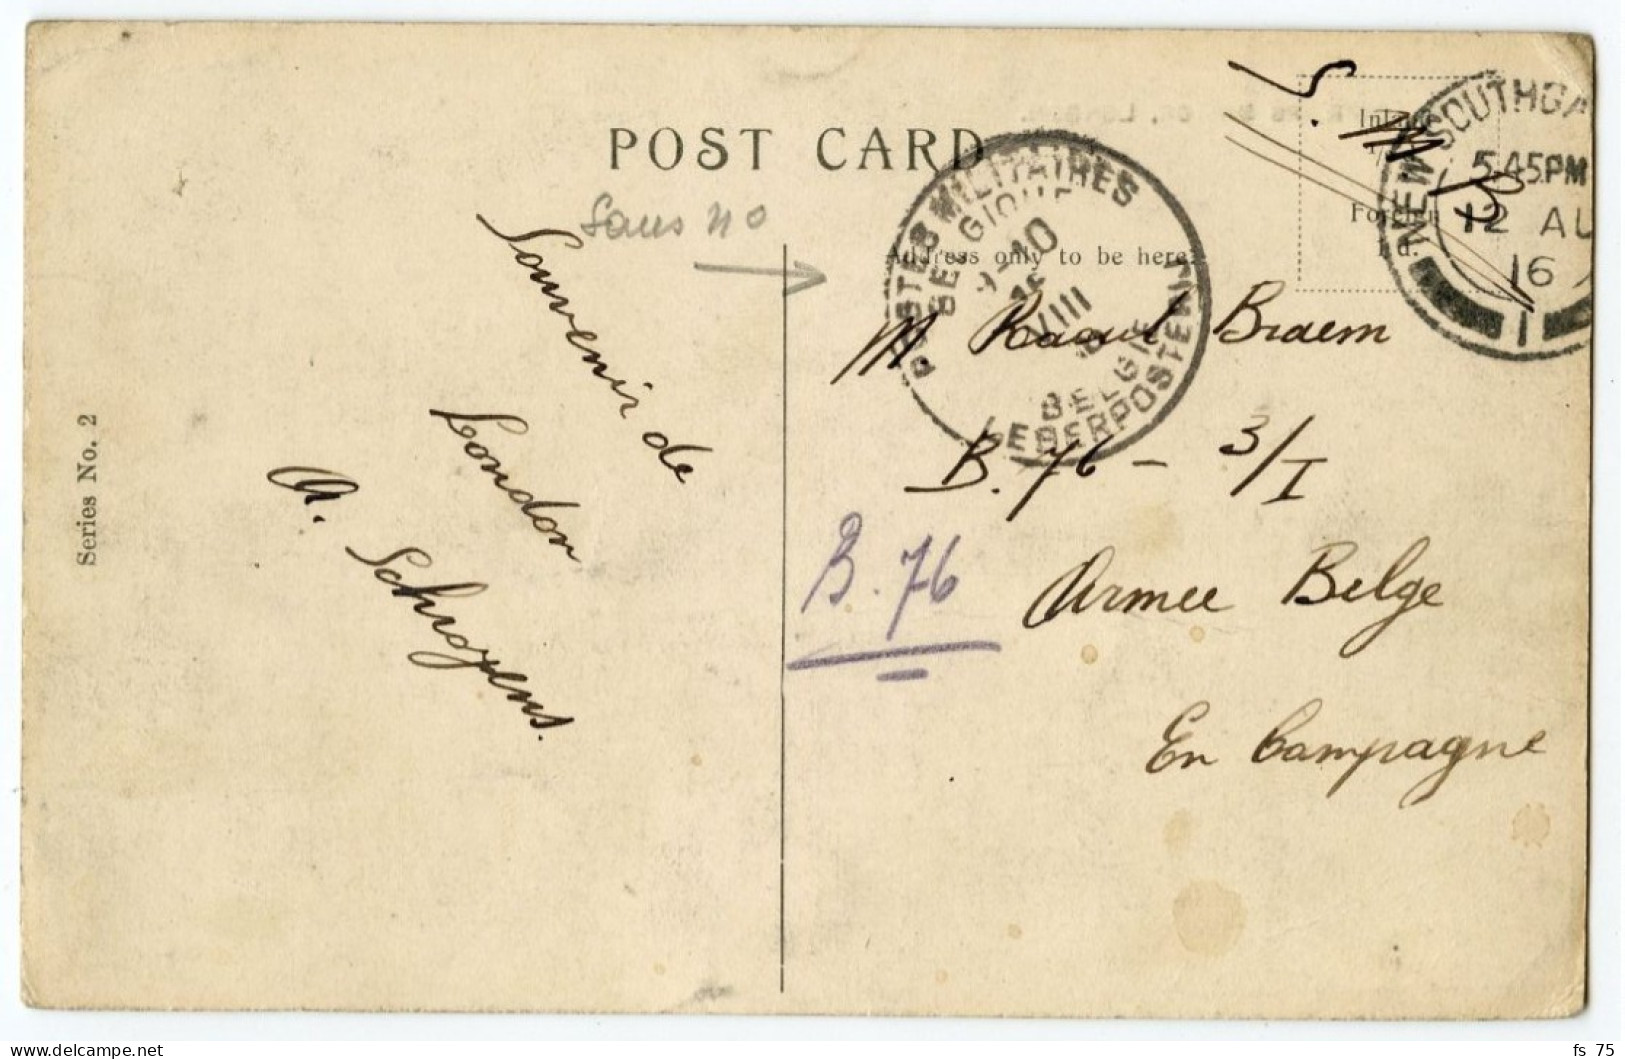 POST CARD
S.M
B
NEW SOUTHGA
5.45PM
12 AU
16
1
Inland
Foreign
1d.
Sans no
POSTES MILITAIRES
BELGIQUE
9-10
VIII
BELGIE
Address only to be here.
Souvenir de
London
A. Schroyens.
Series No. 2
M. Raoul Braem
B. 76 - 3/I
B. 76
Armee Belge
En Campagne
fs 75